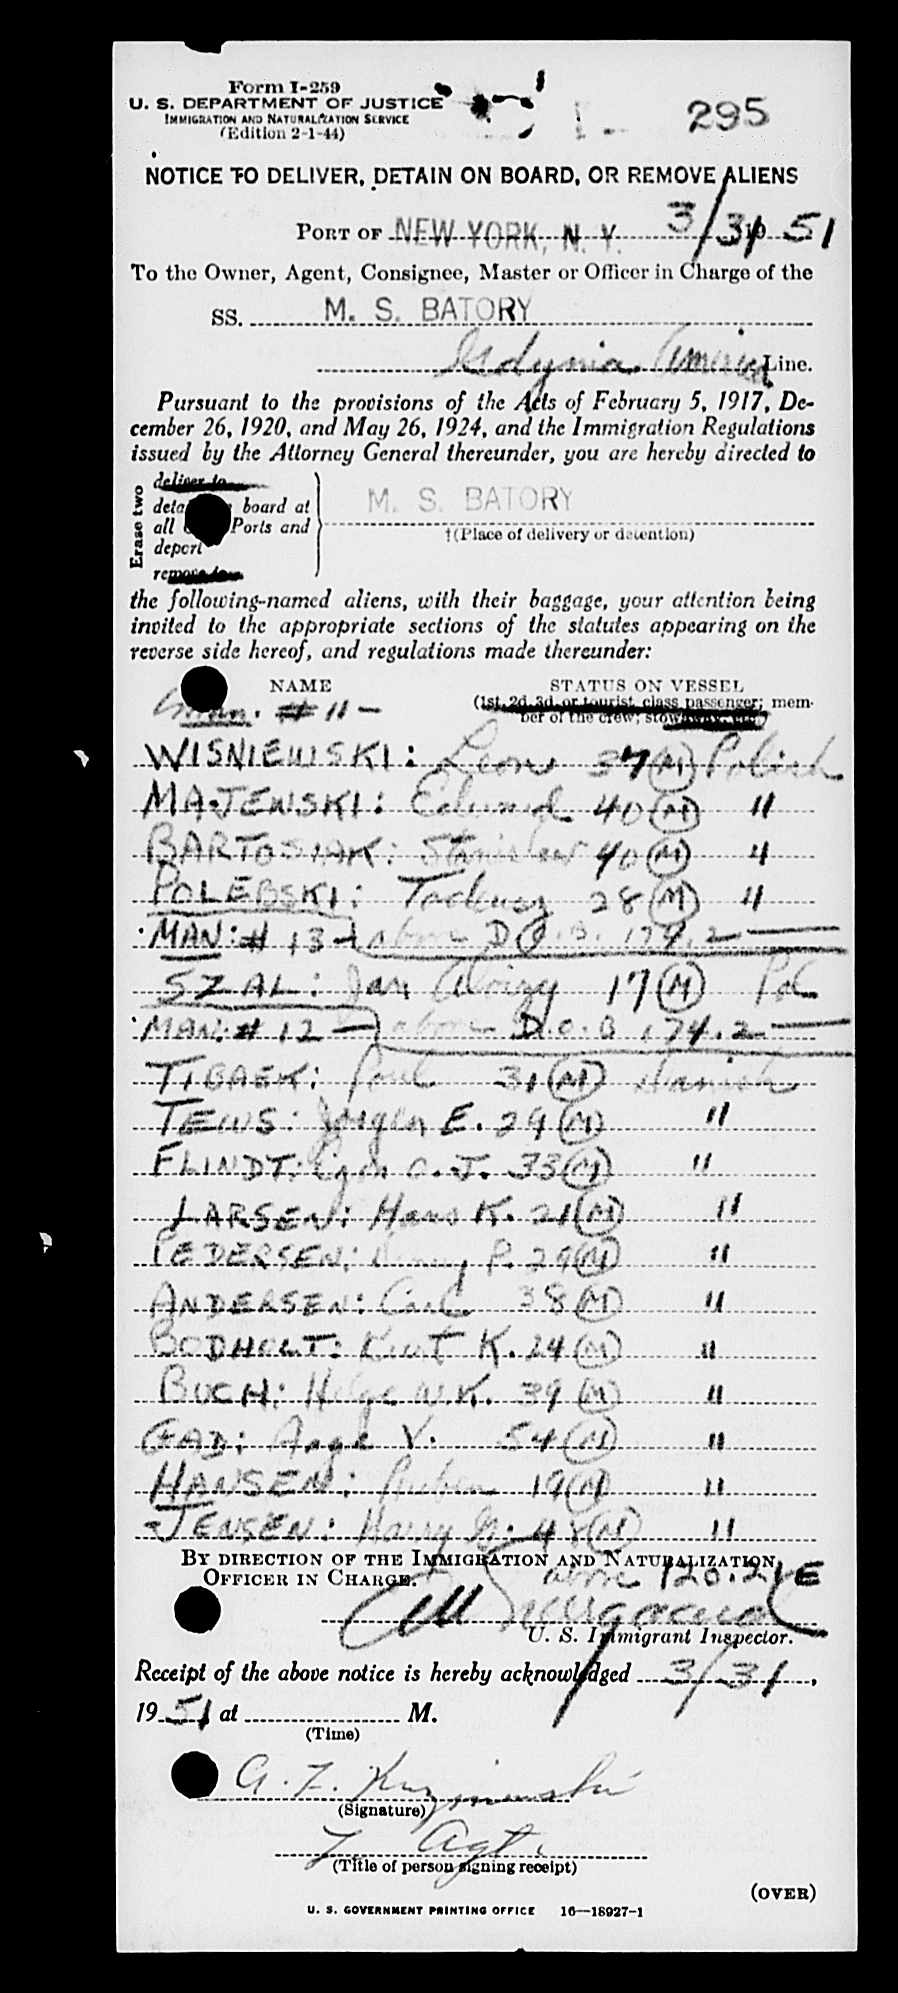 Form I-259
U. S. DEPARTMENT OF JUSTICE
IMMIGRATION AND NATURALIZATION SERVICE
(Edition 2-1-44)
295
NOTICE TO DELIVER, DETAIN ON BOARD, OR REMOVE ALIENS
PORT OF NEW YORK, N. Y. 3/31 19 51
To the Owner, Agent, Consignee, Master or Officer in Charge of the
SS. M. S. BATORY
Gdynia America Line.
Pursuant to the provisions of the Acts of February 5, 1917, De-
cember 26, 1920, and May 26, 1924, and the Immigration Regulations
issued by the Attorney General thereunder, you are hereby directed to
Erase two
deliver to
board at
all Ports and
deport
remove to
M. S. BATORY
†(Place of delivery or detention)
the following-named aliens, with their baggage, your attention being
invited to the appropriate sections of the statutes appearing on the
reverse side hereof, and regulations made thereunder:
NAME STATUS ON VESSEL
(1st, 2d, 3d, or tourist class passenger; mem-
ber of the crew; stowaway, etc.)
# 11 -
WISNIEWSKI: Leon 37 (M) Polish
MAJEWSKI: Edward 40 (M) "
BARTOSIAK: Stanislaw 40 (M) "
POLEBSKI: Tadeusz 28 (M) "
MAN: # 13 - above D.O.B. 179.2 -
SZAL: Jan Aloizy 17 (M) Pol
MAN: # 12 - above D.O.B 174.2 -
TIBAEK: Poul 31 (M) Danish
TEWS: Jorgen E. 29 (M) "
FLINDT: Egon O. J. 33 (M) "
LARSEN: Hans K. 21 (M) "
PEDERSEN: P. 29 (M) "
ANDERSEN: Carl 38 (M) "
BODHOLT: Kurt K. 24 (M) "
BUCH: Helge W. K. 39 (M) "
GAD: Aage V. 54 (M) "
HANSEN: Preben 19 (M) "
JENSEN: Harry 48 (M) "
BY DIRECTION OF THE IMMIGRATION AND NATURALIZATION
OFFICER IN CHARGE. above 120.21E
U. S. Immigrant Inspector.
Receipt of the above notice is hereby acknowledged 3/31,
19 51 at M.
(Time)
(Signature)
Agt.
(Title of person signing receipt)
(OVER)
U. S. GOVERNMENT PRINTING OFFICE 16—18927-1